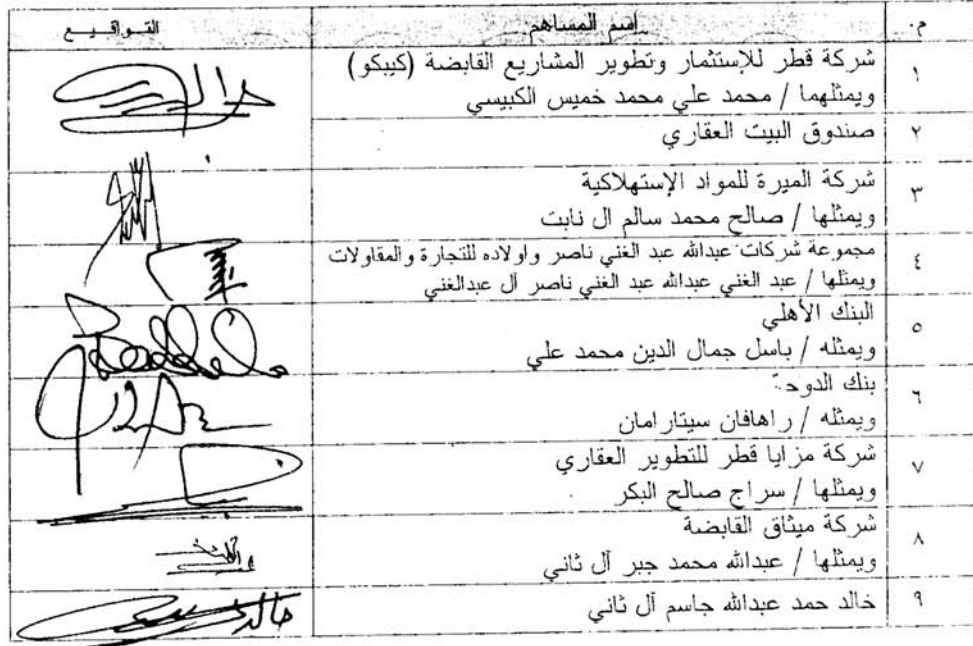 م.	إسم المساهم	التـواقـيـع
١	شركة قطر للإستثمار وتطوير المشاريع القابضة (كيبكو)
ويمثلهما / محمد علي محمد خميس الكبيسي
٢	صندوق البيت العقاري
٣	شركة الميرة للمواد الإستهلاكية
ويمثلها / صالح محمد سالم ال نابت
٤	مجموعة شركات عبدالله عبد الغني ناصر واولاده للتجارة والمقاولات
ويمثلها / عبد الغني عبدالله عبد الغني ناصر آل عبدالغني
٥	البنك الأهلي
ويمثله / باسل جمال الدين محمد علي
٦	بنك الدوحة
ويمثله / راهافان سيتارامان
٧	شركة مزايا قطر للتطوير العقاري
ويمثلها / سراج صالح البكر
٨	شركة ميثاق القابضة
ويمثلها / عبدالله محمد جبر آل ثاني
٩	خالد حمد عبدالله جاسم آل ثاني	خالد